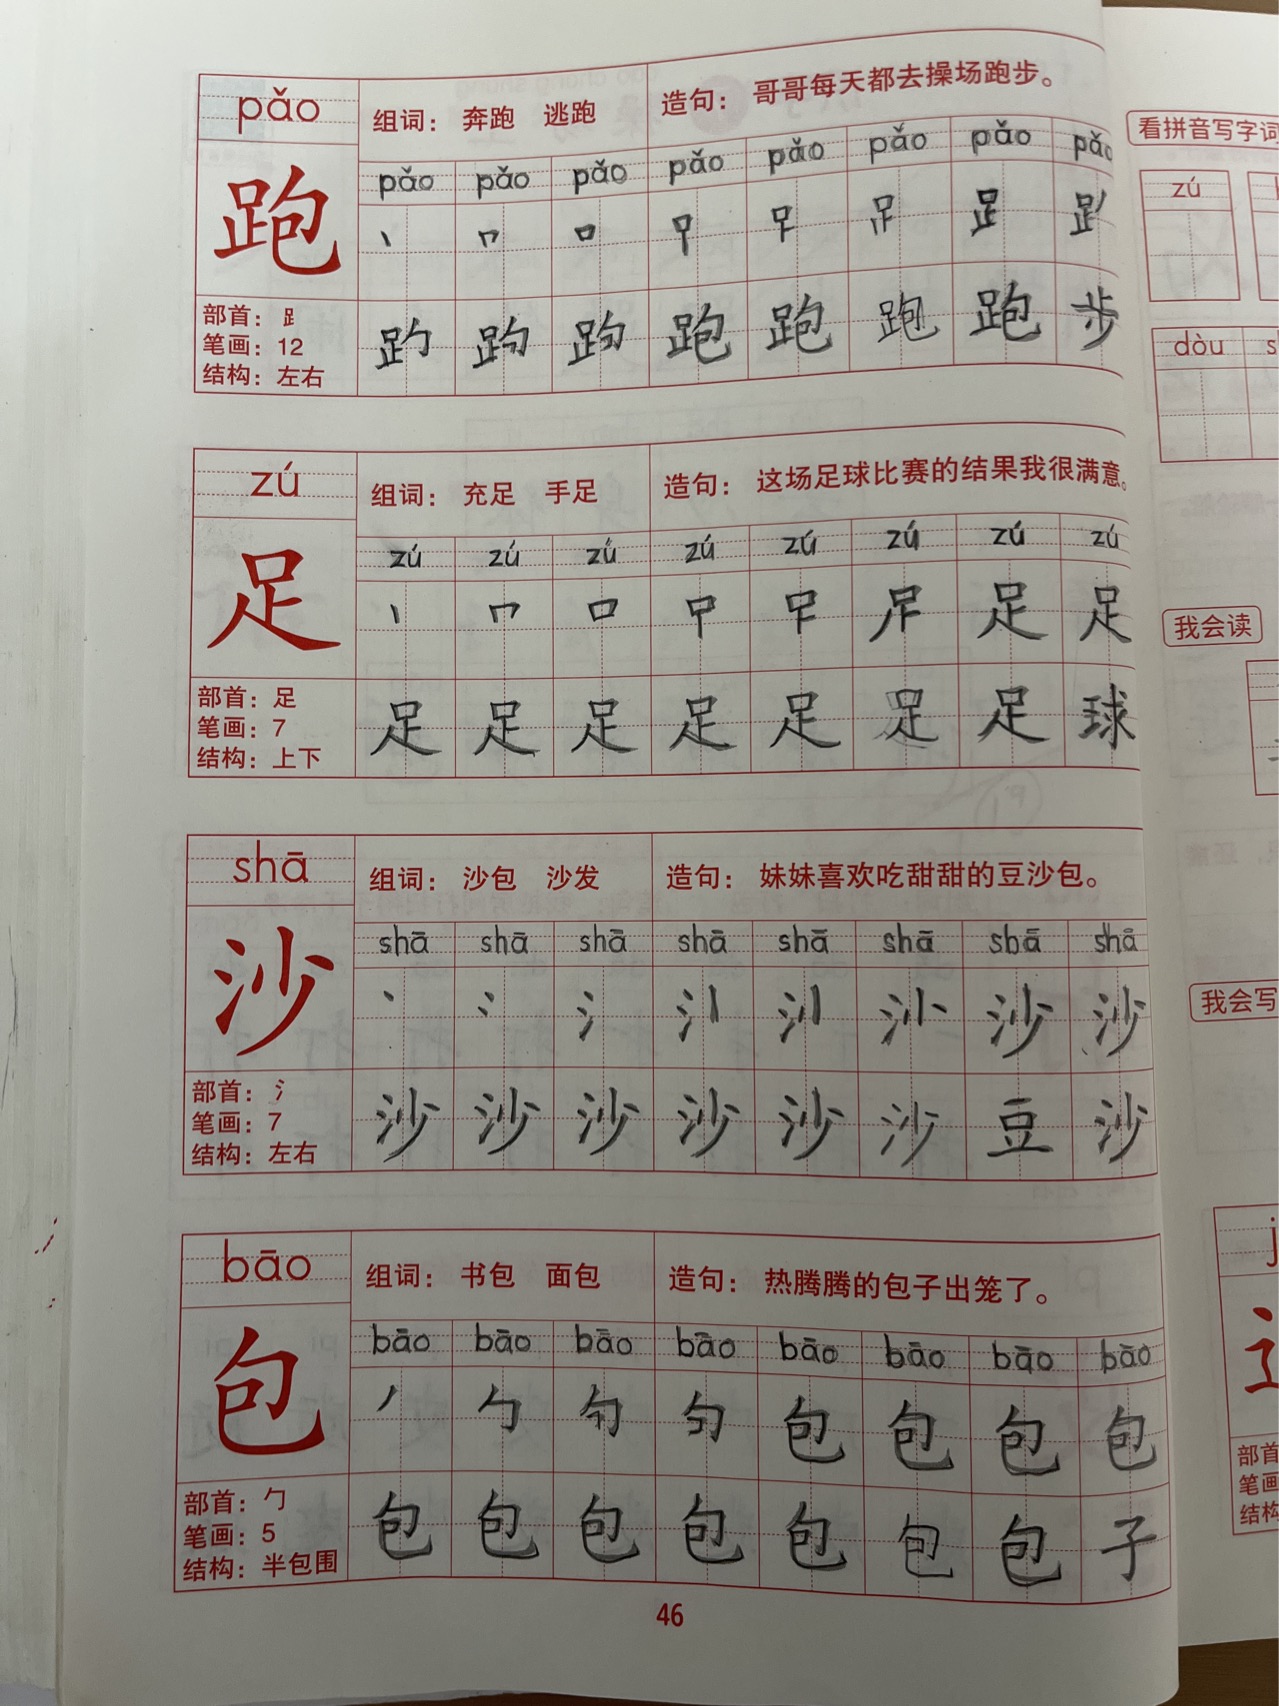 pǎo 组词： 奔跑 逃跑 造句： 哥哥每天都去操场跑步。
pǎo pǎo pǎo pǎo pǎo pǎo pǎo pǎo
跑
部首：⻊
笔画：12
结构：左右
跑 跑 跑 跑 步
zú 组词： 充足 手足 造句： 这场足球比赛的结果我很满意。
zú zú zú zú zú zú zú zú
足 足 足
部首：足
笔画：7
结构：上下
足 足 足 足 足 足 足 球
shā 组词： 沙包 沙发 造句： 妹妹喜欢吃甜甜的豆沙包。
shā shā shā shā shā shā shā shā
沙 沙 沙
部首：氵
笔画：7
结构：左右
沙 沙 沙 沙 沙 沙 豆 沙
bāo 组词： 书包 面包 造句： 热腾腾的包子出笼了。
bāo bāo bāo bāo bāo bāo bāo bāo
包 包 包 包 包
部首：勹
笔画：5
结构：半包围
包 包 包 包 包 包 包 子
46
看拼音写字词
zú
dòu s
我会读
我会写
j
部首
笔画
结构